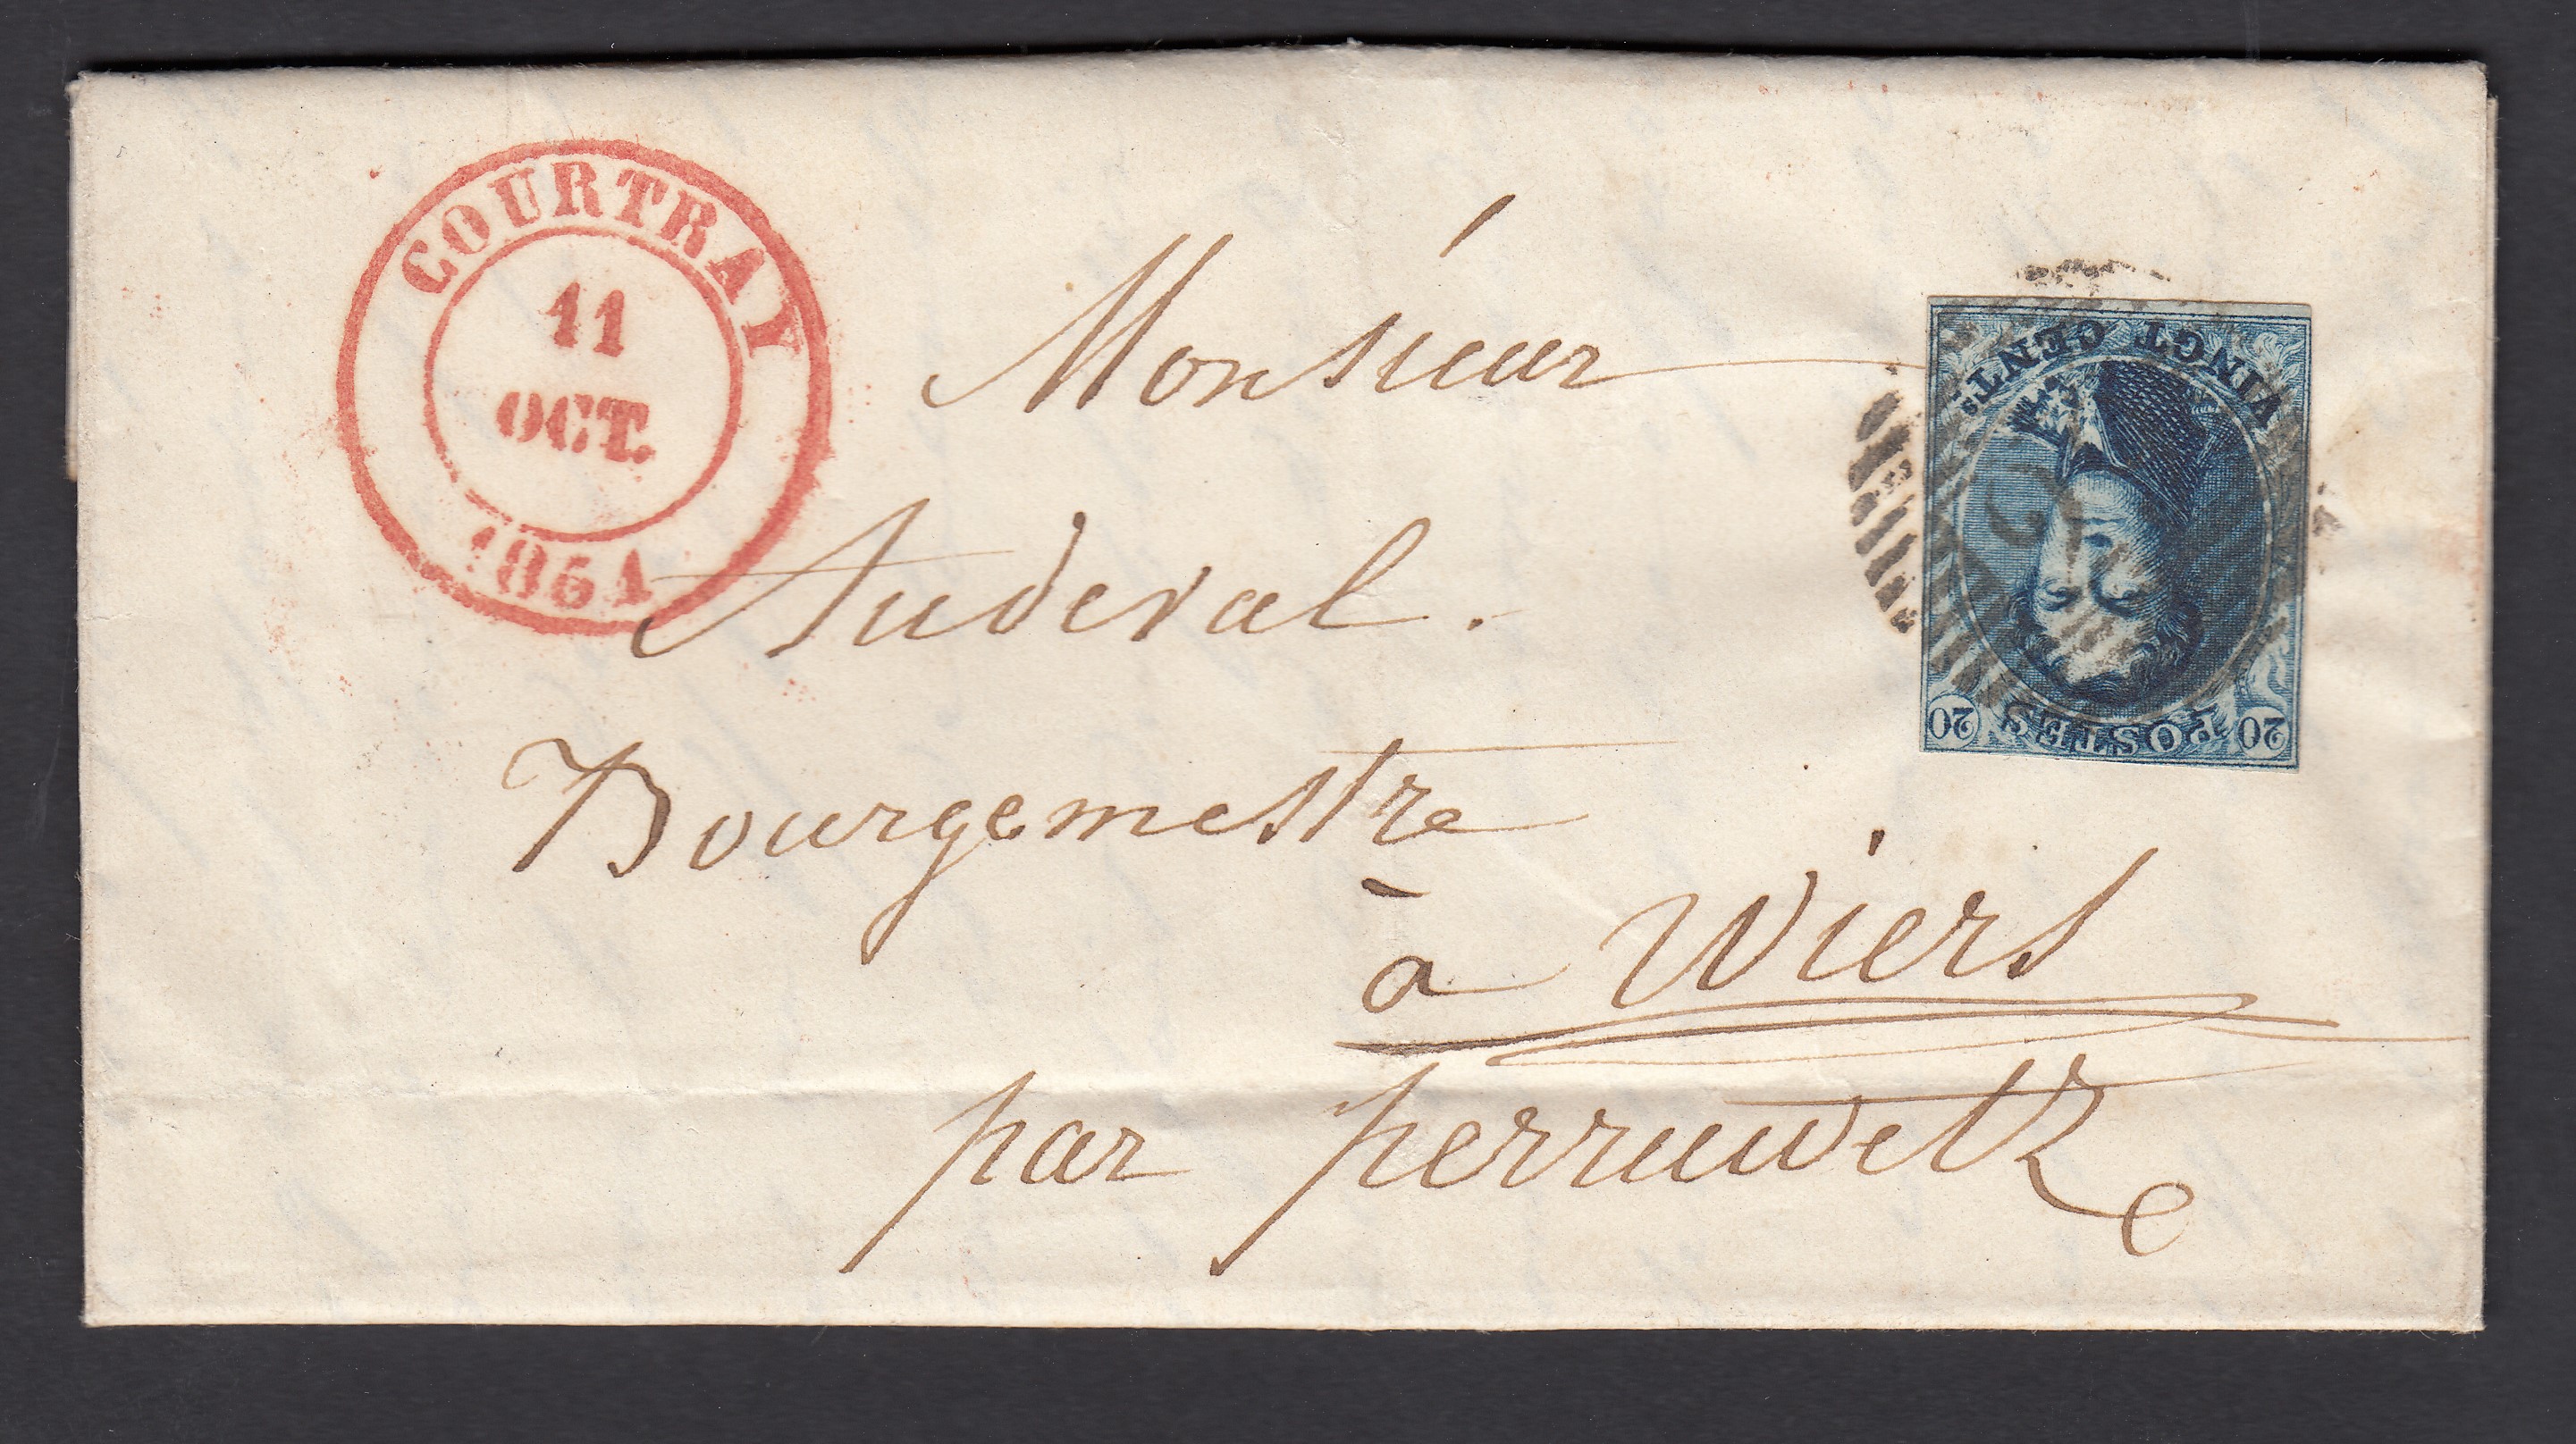 COURTRAY
11
OCT.
1851
Monsieur
Auderal.
Bourgemestre
à Wiers
par perruwelz
VINGT CENTS.
20 POSTES 20